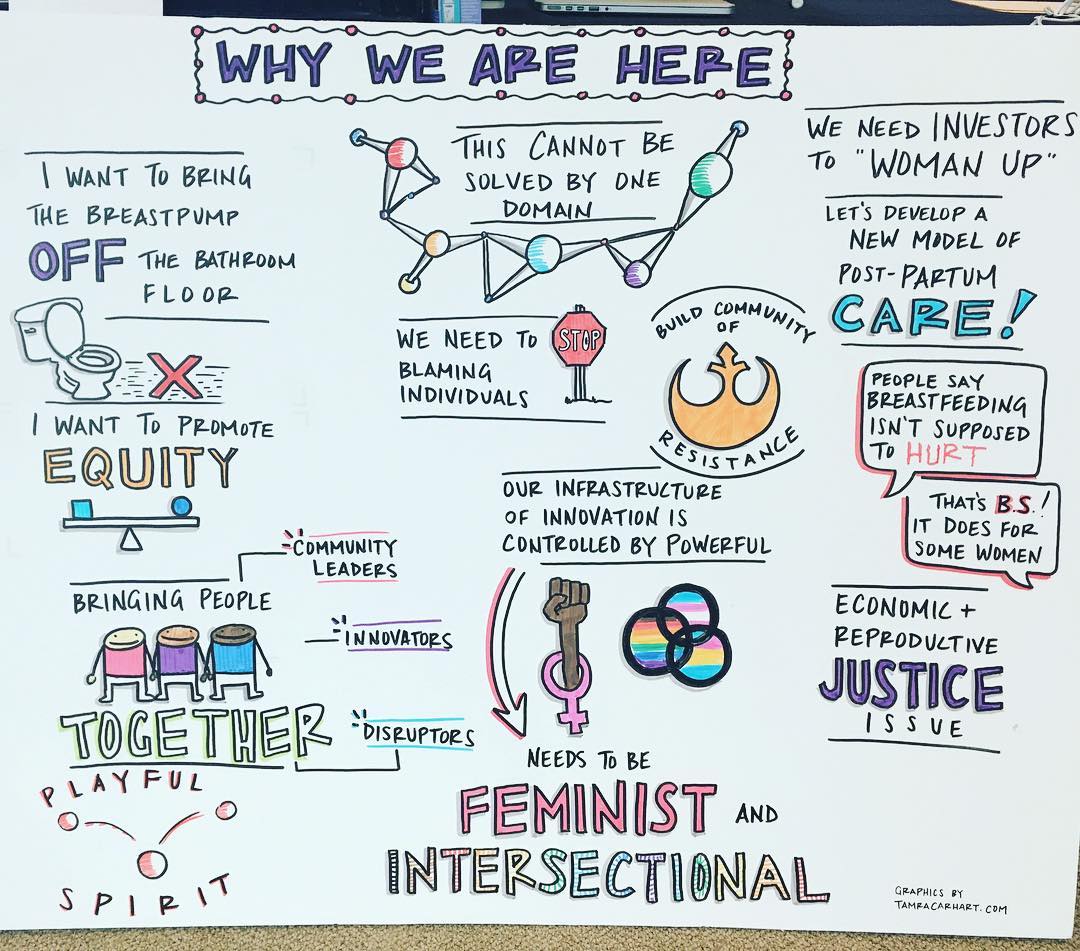 WHY WE ARE HERE
I WANT TO BRING
THE BREASTPUMP
OFF THE BATHROOM
FLOOR
I WANT TO PROMOTE
EQUITY
BRINGING PEOPLE
TOGETHER
COMMUNITY
LEADERS
INNOVATORS
DISRUPTORS
PLAYFUL
SPIRIT
THIS CANNOT BE
SOLVED BY ONE
DOMAIN
WE NEED TO
STOP
BLAMING
INDIVIDUALS
BUILD COMMUNITY
OF
RESISTANCE
OUR INFRASTRUCTURE
OF INNOVATION IS
CONTROLLED BY POWERFUL
NEEDS TO BE
FEMINIST AND
INTERSECTIONAL
WE NEED INVESTORS
TO "WOMAN UP"
LET'S DEVELOP A
NEW MODEL OF
POST-PARTUM
CARE!
PEOPLE SAY
BREASTFEEDING
ISN'T SUPPOSED
TO HURT
THAT'S B.S.!
IT DOES FOR
SOME WOMEN
ECONOMIC +
REPRODUCTIVE
JUSTICE
ISSUE
GRAPHICS BY
TAMRACARHART.COM